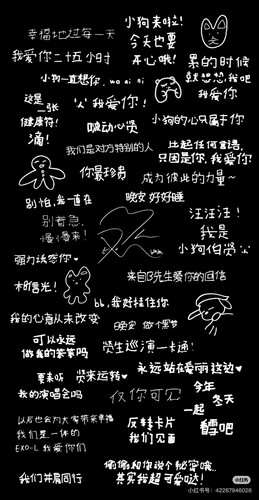 小狗来啦！
幸福地过每一天
今天也要
开心哦！
我爱你二十五小时
累的时候
就想想我吧
小狗一直想你，wo ai ni
我爱你
这是
一张
健康符！
滴！
"人"我爱你！
啵动心贤
小狗的心只属于你
我们是对方特别的人
比起任何言语，
只因是你，我爱你
你最珍贵
成为彼此的力量~
别怕，我一直在
晚安 好好睡
别着急，
慢慢来！
汪汪汪！
我是
小狗伯贤
强力诱惑你♡
来自B先生爱你的回信
bb，我好挂住你
我的心意从未改变
晚安 做个美梦
可以永远
做我的笨笨吗
贤生巡演一卡通！
要来听
我的演唱会吗
贤来运转♡
永远站在爱丽这边♡
仅你可见
今年
冬天
一起
看雪吧
以后也会为大家带来幸福
我们是一体的
EXO-L 我爱你们
反转卡片
我们见面
我们并肩同行
偷偷和你说个秘密哦，
其实我超可爱哒！
小红书
小红书号：42287946026